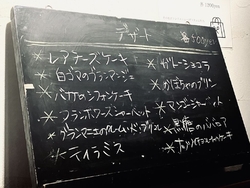 デザート 各500yen
＊レアチーズケーキ
＊白ゴマのブランマンジェ
＊バナナのシフォンケーキ
＊フランボワーズシャーベット
＊グランマニエのクレームブリュレ
＊ティラミス
＊ガトーショコラ
＊かぼちゃのプリン
＊マンゴーシャーベット
＊黒糖のババロア